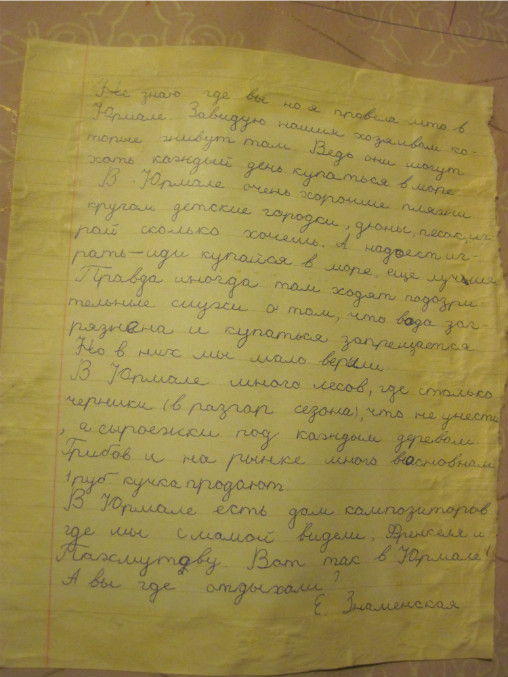 Не знаю где вы но я провела лето в
Юрмале. Завидую нашим хозяевам ко-
торые живут там. Ведь они могут
хоть каждый день купаться в море
В Юрмале очень хорошие пляжи
кругом детские городки, дюны, песок, иг-
рай сколько хочешь. А надоест иг-
рать – иди купайся в море, еще лучше
Правда иногда там ходят подозри-
тельные слухи о том, что вода заг-
рязнена и купаться запрещается
Но в них мы мало верили
В Юрмале много лесов, где столько
черники (в разгар сезона), что не унести
, а сыроежки под каждым деревом
Грибов и на рынке много восновном
1 руб кучка продают.
В Юрмале есть дом композиторов
где мы с мамой видели, Френкеля и
Пахмутову. Вот так в Юрмале!
А вы где отдыхали?
Е. Знаменская